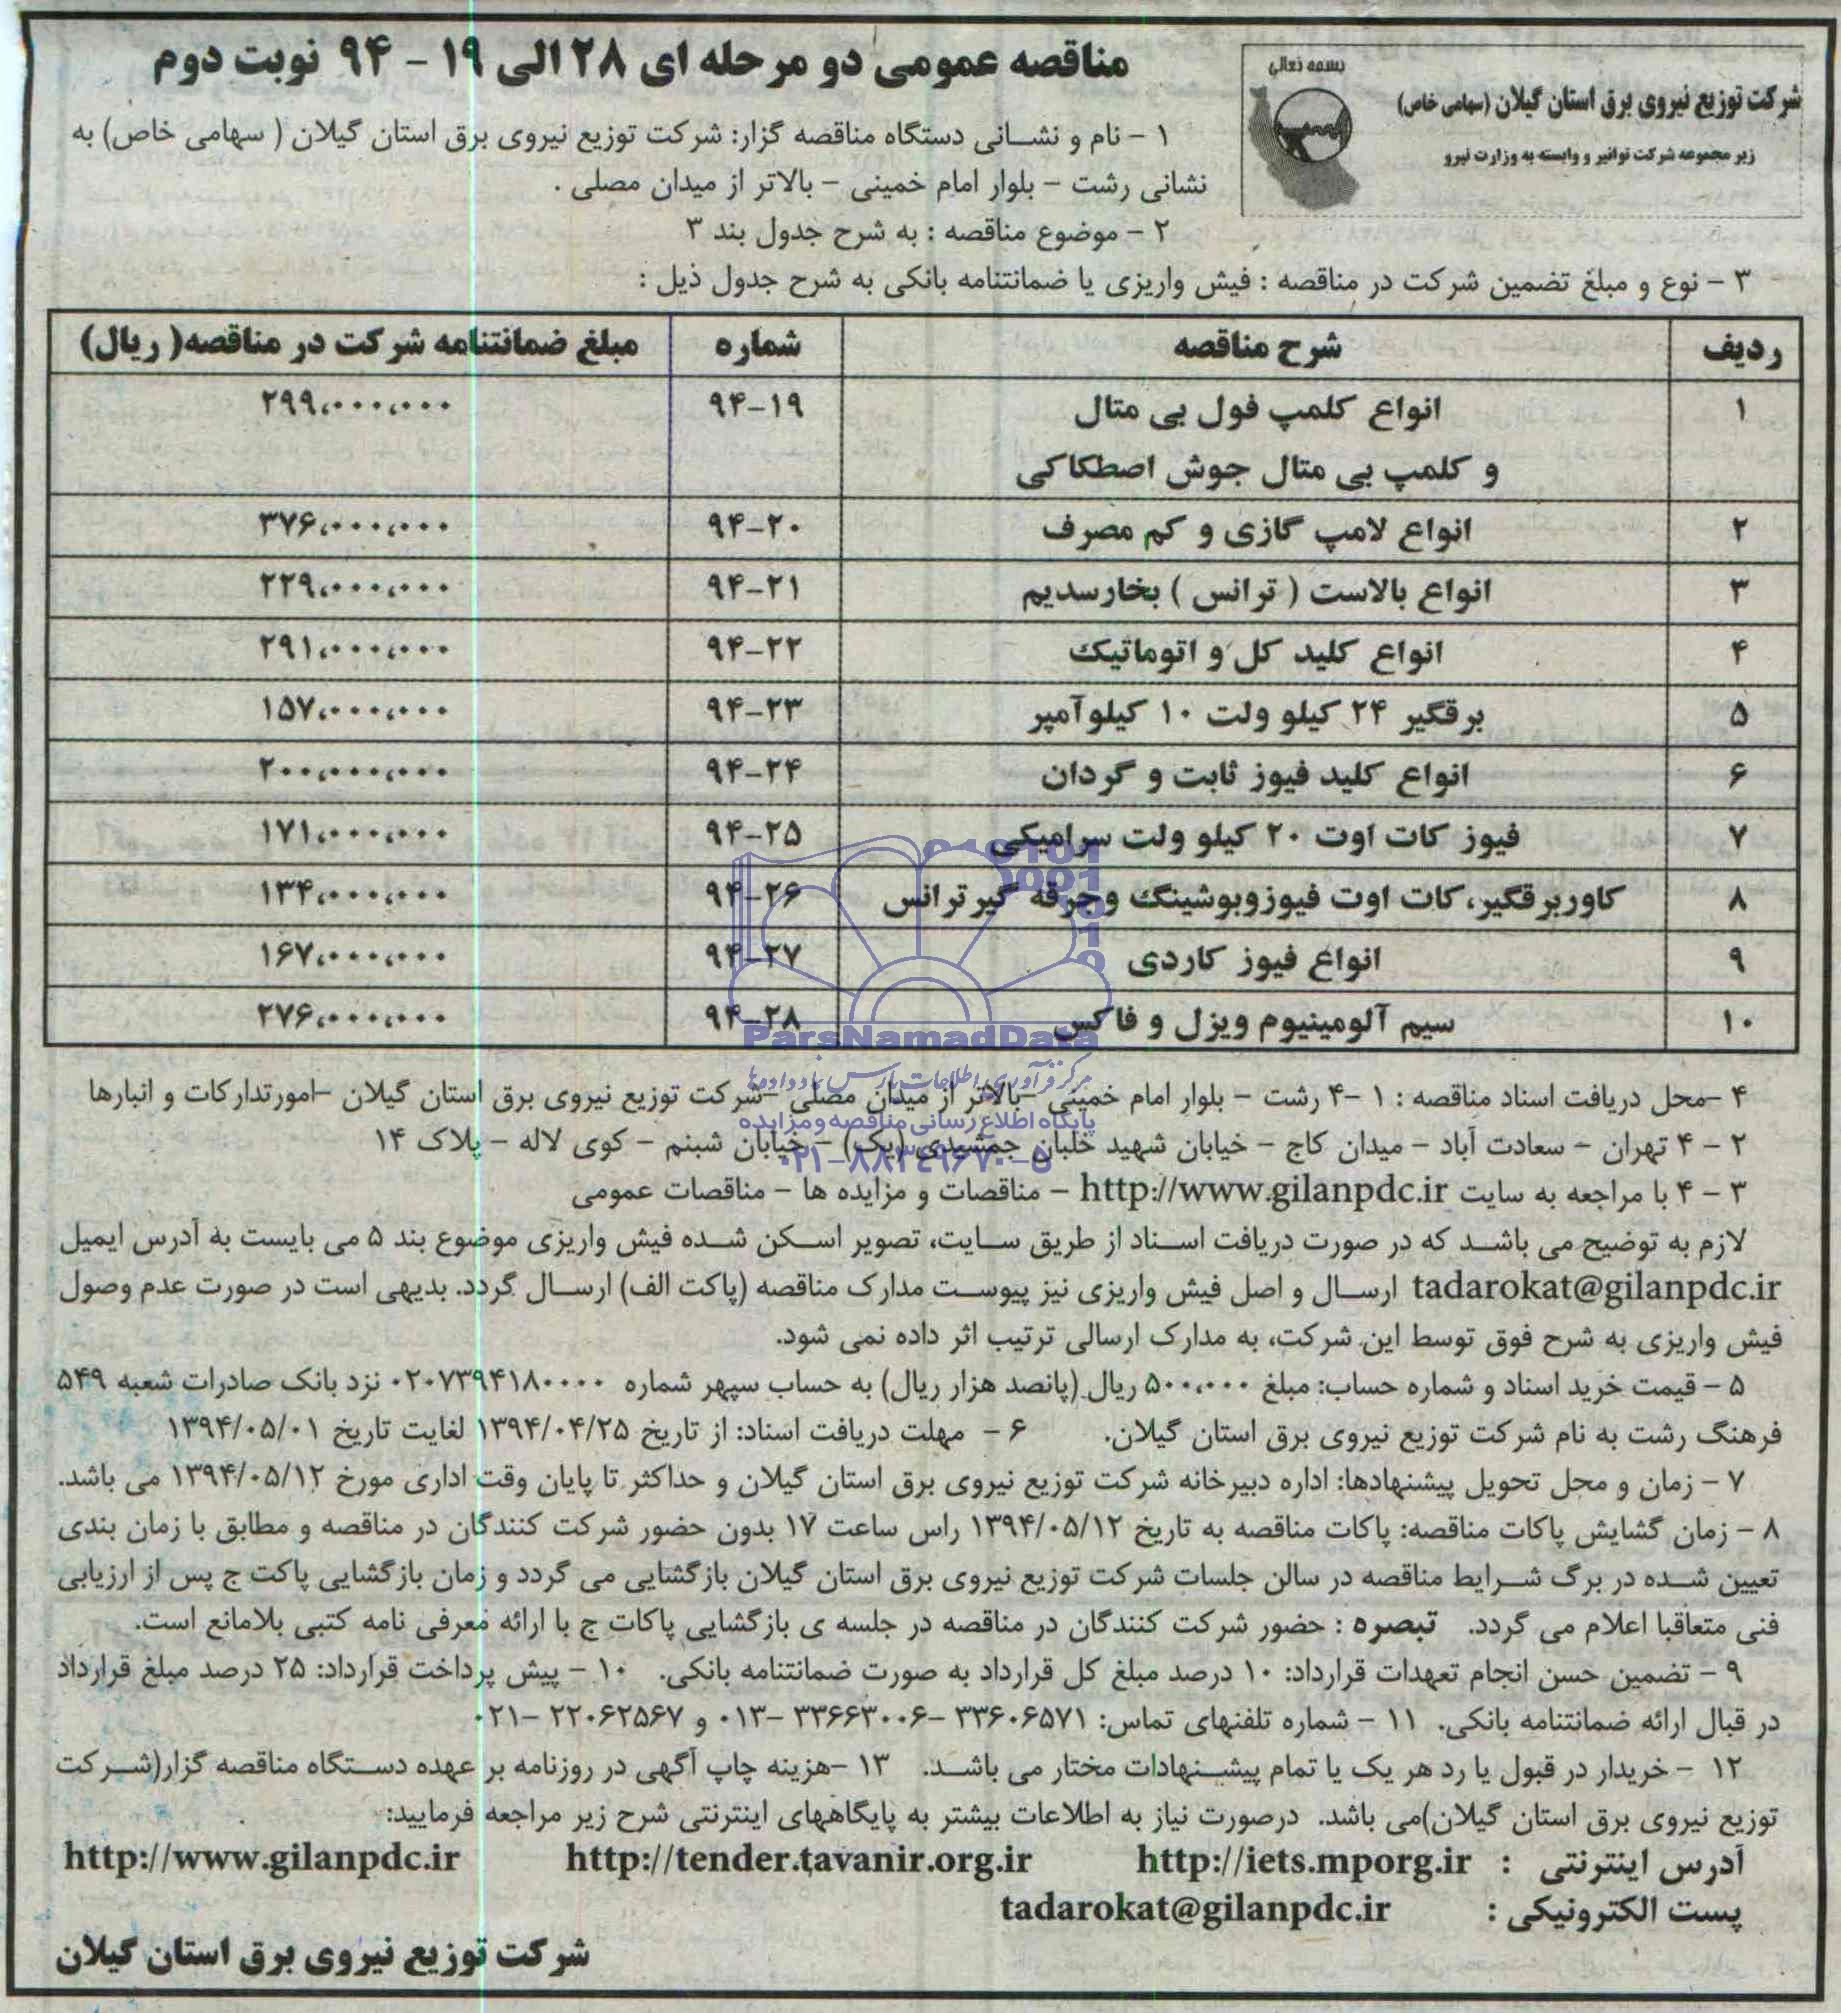 بسمه تعالی
شرکت توزیع نیروی برق استان گیلان (سهامی خاص)
زیر مجموعه شرکت توانیر و وابسته به وزارت نیرو
مناقصه عمومی دو مرحله ای ۲۸ الی ۱۹ - ۹۴ نوبت دوم
۱ - نام و نشانی دستگاه مناقصه گزار: شرکت توزیع نیروی برق استان گیلان ( سهامی خاص) به
نشانی رشت - بلوار امام خمینی - بالاتر از میدان مصلی .
۲ - موضوع مناقصه : به شرح جدول بند ۳
۳ - نوع و مبلغ تضمین شرکت در مناقصه : فیش واریزی یا ضمانتنامه بانکی به شرح جدول ذیل :
ردیف شرح مناقصه شماره مبلغ ضمانتنامه شرکت در مناقصه( ریال)
۱ انواع کلمپ فول بی متال ۹۴-۱۹ ۲۹۹،۰۰۰،۰۰۰
و کلمپ بی متال جوش اصطکاکی
۲ انواع لامپ گازی و کم مصرف ۹۴-۲۰ ۳۷۶،۰۰۰،۰۰۰
۳ انواع بالاست ( ترانس ) بخارسدیم ۹۴-۲۱ ۲۲۹،۰۰۰،۰۰۰
۴ انواع کلید کل و اتوماتیک ۹۴-۲۲ ۲۹۱،۰۰۰،۰۰۰
۵ برقگیر ۲۴ کیلو ولت ۱۰ کیلوآمپر ۹۴-۲۳ ۱۵۷،۰۰۰،۰۰۰
۶ انواع کلید فیوز ثابت و گردان ۹۴-۲۴ ۲۰۰،۰۰۰،۰۰۰
۷ فیوز کات اوت ۲۰ کیلو ولت سرامیکی ۹۴-۲۵ ۱۷۱،۰۰۰،۰۰۰
۸ کاوربرقگیر، کات اوت فیوزوبوشینگ وجرقه گیرترانس ۹۴-۲۶ ۱۳۴،۰۰۰،۰۰۰
۹ انواع فیوز کاردی ۹۴-۲۷ ۱۶۷،۰۰۰،۰۰۰
۱۰ سیم آلومینیوم ویزل و فاکس ۹۴-۲۸ ۲۷۶،۰۰۰،۰۰۰
ParsNamadData
مرکز فرآوری اطلاعات پارس نماد داده ها
پایگاه اطلاع رسانی مناقصه و مزایده
۰۲۱-۸۸۳۴۹۶۷۰-۵
۴ -محل دریافت اسناد مناقصه : ۱ -۴ رشت - بلوار امام خمینی -بالاتر از میدان مصلی -شرکت توزیع نیروی برق استان گیلان -امورتدارکات و انبارها
۲ - ۴ تهران - سعادت آباد - میدان کاج - خیابان شهید خلبان جمشیدی (یک) - خیابان شبنم - کوی لاله - پلاک ۱۴
۳ - ۴ با مراجعه به سایت http://www.gilanpdc.ir - مناقصات و مزایده ها - مناقصات عمومی
لازم به توضیح می باشد که در صورت دریافت اسناد از طریق سایت، تصویر اسکن شده فیش واریزی موضوع بند ۵ می بایست به آدرس ایمیل
tadarokat@gilanpdc.ir ارسال و اصل فیش واریزی نیز پیوست مدارک مناقصه (پاکت الف) ارسال گردد. بدیهی است در صورت عدم وصول
فیش واریزی به شرح فوق توسط این شرکت، به مدارک ارسالی ترتیب اثر داده نمی شود.
۵ - قیمت خرید اسناد و شماره حساب: مبلغ ۵۰۰،۰۰۰ ریال (پانصد هزار ریال) به حساب سپهر شماره ۰۲۰۷۳۹۴۱۸۰۰۰۰ نزد بانک صادرات شعبه ۵۴۹
فرهنگ رشت به نام شرکت توزیع نیروی برق استان گیلان. ۶ - مهلت دریافت اسناد: از تاریخ ۱۳۹۴/۰۴/۲۵ لغایت تاریخ ۱۳۹۴/۰۵/۰۱
۷ - زمان و محل تحویل پیشنهادها: اداره دبیرخانه شرکت توزیع نیروی برق استان گیلان و حداکثر تا پایان وقت اداری مورخ ۱۳۹۴/۰۵/۱۲ می باشد.
۸ - زمان گشایش پاکات مناقصه: پاکات مناقصه به تاریخ ۱۳۹۴/۰۵/۱۲ راس ساعت ۱۷ بدون حضور شرکت کنندگان در مناقصه و مطابق با زمان بندی
تعیین شده در برگ شرایط مناقصه در سالن جلسات شرکت توزیع نیروی برق استان گیلان بازگشایی می گردد و زمان بازگشایی پاکت ج پس از ارزیابی
فنی متعاقبا اعلام می گردد. تبصره : حضور شرکت کنندگان در مناقصه در جلسه ی بازگشایی پاکات ج با ارائه معرفی نامه کتبی بلامانع است.
۹ - تضمین حسن انجام تعهدات قرارداد: ۱۰ درصد مبلغ کل قرارداد به صورت ضمانتنامه بانکی. ۱۰ - پیش پرداخت قرارداد: ۲۵ درصد مبلغ قرارداد
در قبال ارائه ضمانتنامه بانکی. ۱۱ - شماره تلفنهای تماس: ۳۳۶۰۶۵۷۱ -۳۳۶۶۳۰۰۶ -۰۱۳ و ۲۲۰۶۲۵۶۷ -۰۲۱
۱۲ - خریدار در قبول یا رد هر یک یا تمام پیشنهادات مختار می باشد. ۱۳ -هزینه چاپ آگهی در روزنامه بر عهده دستگاه مناقصه گزار(شرکت
توزیع نیروی برق استان گیلان)می باشد. درصورت نیاز به اطلاعات بیشتر به پایگاههای اینترنتی شرح زیر مراجعه فرمایید:
آدرس اینترنتی : http://iets.mporg.ir http://tender.tavanir.org.ir http://www.gilanpdc.ir
پست الکترونیکی : tadarokat@gilanpdc.ir
شرکت توزیع نیروی برق استان گیلان